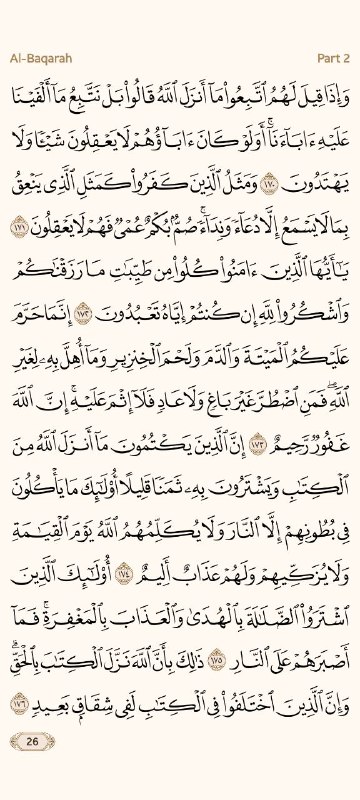 Al-Baqarah Part 2
وَإِذَا قِيلَ لَهُمُ ٱتَّبِعُوا۟ مَآ أَنزَلَ ٱللَّهُ قَالُوا۟ بَلْ نَتَّبِعُ مَآ أَلْفَيْنَا
عَلَيْهِ ءَابَآءَنَآ ۗ أَوَلَوْ كَانَ ءَابَآؤُهُمْ لَا يَعْقِلُونَ شَيْـًٔا وَلَا
يَهْتَدُونَ ١٧٠ وَمَثَلُ ٱلَّذِينَ كَفَرُوا۟ كَمَثَلِ ٱلَّذِى يَنْعِقُ
بِمَا لَا يَسْمَعُ إِلَّا دُعَآءً وَنِدَآءً ۚ صُمٌّۢ بُكْمٌ عُمْىٌ فَهُمْ لَا يَعْقِلُونَ ١٧١
يَـٰٓأَيُّهَا ٱلَّذِينَ ءَامَنُوا۟ كُلُوا۟ مِن طَيِّبَـٰتِ مَا رَزَقْنَـٰكُمْ
وَٱشْكُرُوا۟ لِلَّهِ إِن كُنتُمْ إِيَّاهُ تَعْبُدُونَ ١٧٢ إِنَّمَا حَرَّمَ
عَلَيْكُمُ ٱلْمَيْتَةَ وَٱلدَّمَ وَلَحْمَ ٱلْخِنزِيرِ وَمَآ أُهِلَّ بِهِۦ لِغَيْرِ
ٱللَّهِ ۖ فَمَنِ ٱضْطُرَّ غَيْرَ بَاغٍ وَلَا عَادٍ فَلَآ إِثْمَ عَلَيْهِ ۚ إِنَّ ٱللَّهَ
غَفُورٌ رَّحِيمٌ ١٧٣ إِنَّ ٱلَّذِينَ يَكْتُمُونَ مَآ أَنزَلَ ٱللَّهُ مِنَ
ٱلْكِتَـٰبِ وَيَشْتَرُونَ بِهِۦ ثَمَنًا قَلِيلًا ۙ أُو۟لَـٰٓئِكَ مَا يَأْكُلُونَ
فِى بُطُونِهِمْ إِلَّا ٱلنَّارَ وَلَا يُكَلِّمُهُمُ ٱللَّهُ يَوْمَ ٱلْقِيَـٰمَةِ
وَلَا يُزَكِّيهِمْ وَلَهُمْ عَذَابٌ أَلِيمٌ ١٧٤ أُو۟لَـٰٓئِكَ ٱلَّذِينَ
ٱشْتَرَوُا۟ ٱلضَّلَـٰلَةَ بِٱلْهُدَىٰ وَٱلْعَذَابَ بِٱلْمَغْفِرَةِ ۚ فَمَآ
أَصْبَرَهُمْ عَلَى ٱلنَّارِ ١٧٥ ذَٰلِكَ بِأَنَّ ٱللَّهَ نَزَّلَ ٱلْكِتَـٰبَ بِٱلْحَقِّ ۗ
وَإِنَّ ٱلَّذِينَ ٱخْتَلَفُوا۟ فِى ٱلْكِتَـٰبِ لَفِى شِقَاقٍۭ بَعِيدٍ ١٧٦
26